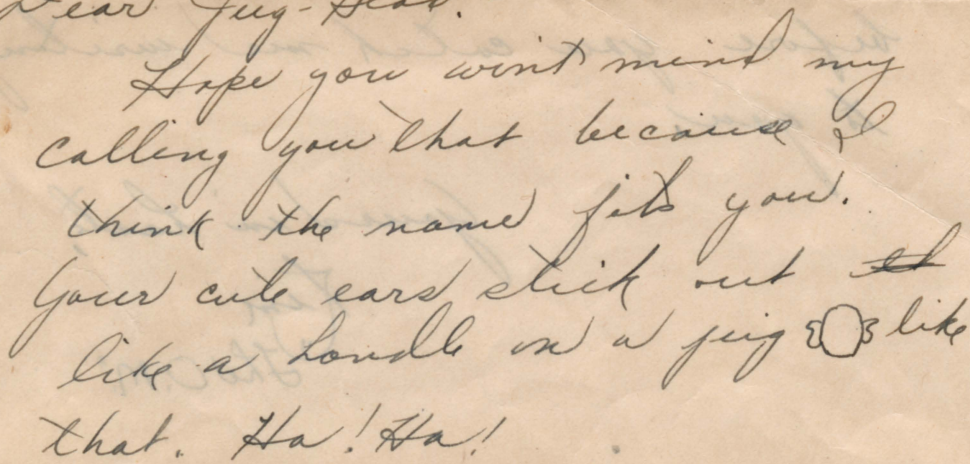 Dear Jug-Head.
Hope you won't mind my
calling you that because I
think the name fits you.
Your cute ears stick out
like a handle on a jug like
that. Ha! Ha!